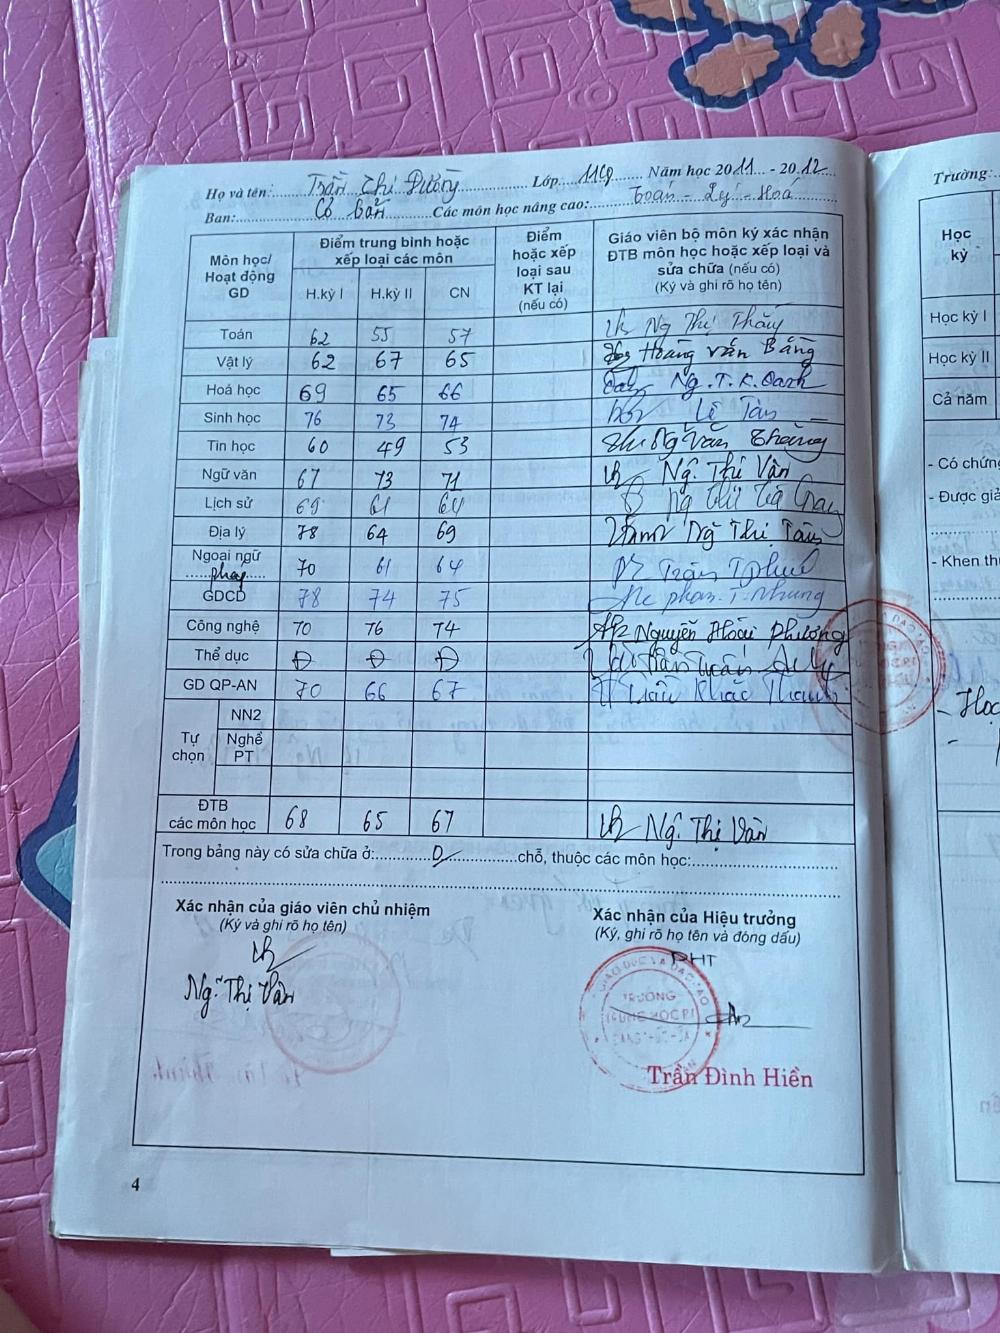 Họ và tên: Trần Thị Đường Lớp 11C9 Năm học 2011 - 2012
Ban: Cơ bản Các môn học nâng cao: Toán - Lý - Hoá
Môn học/ Hoạt động GD
Điểm trung bình hoặc xếp loại các môn
H.kỳ I H.kỳ II CN
Điểm hoặc xếp loại sau KT lại (nếu có)
Giáo viên bộ môn ký xác nhận ĐTB môn học hoặc xếp loại và sửa chữa (nếu có) (Ký và ghi rõ họ tên)
Toán 62 55 57 Ng Thị Thủy
Vật lý 62 67 65 Hoàng Văn Bằng
Hoá học 69 65 66 Ng. T. K. Oanh
Sinh học 76 73 74 Lê Tân
Tin học 60 49 53 Ng Văn
Ngữ văn 67 73 71 Ng. Thị Vân
Lịch sử 69 61 64 Ng
Địa lý 78 64 69 Ng Thị Tâm
Ngoại ngữ Pháp 70 61 64 Trần T
GDCD 78 74 75 Phan. T. Nhung
Công nghệ 70 76 74 Nguyễn Hoài Phương
Thể dục Đ Đ Đ Trần Tuấn
GD QP-AN 70 66 67 Trần Khắc Thanh
Tự chọn
NN2
Nghề PT
ĐTB các môn học 68 65 67 Ng. Thị Vân
Trong bảng này có sửa chữa ở: 0 chỗ, thuộc các môn học:
Xác nhận của giáo viên chủ nhiệm
(Ký và ghi rõ họ tên)
Ng. Thị Vân
Xác nhận của Hiệu trưởng
(Ký, ghi rõ họ tên và đóng dấu)
PHT
TRƯỜNG
Trần Đình Hiền
4
Trường:
Học kỳ
Học kỳ I
Học kỳ II
Cả năm
- Có chứng
- Được giả
- Khen th
- Học